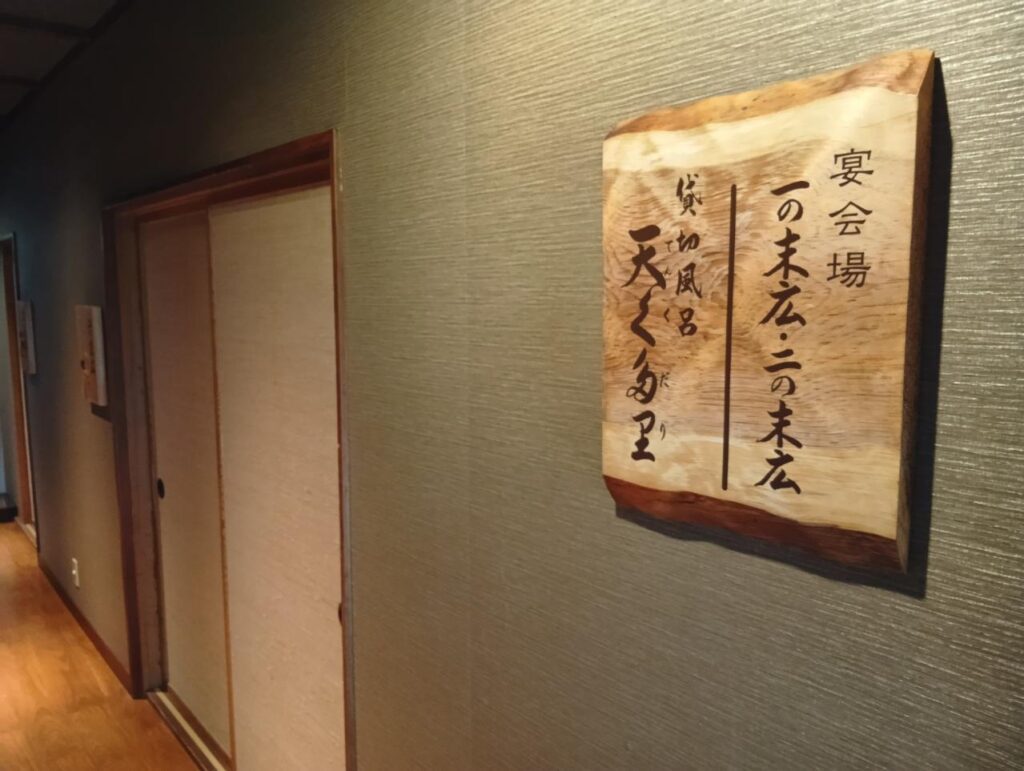 宴会場
一の末広・二の末広
貸切風呂
天く多里
てんぐ だり